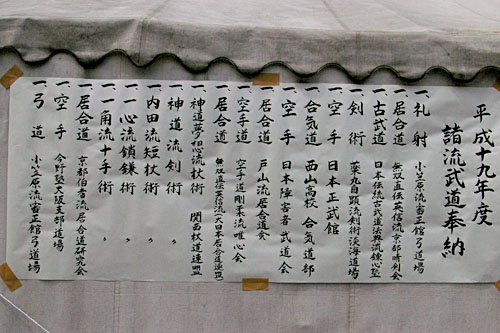 平成十九年度
諸流武道奉納
一、礼射 小笠原流 斎正館弓道場
一、居合道 無双直伝英信流京都晴利会
一、古武道 日本伝流古武道法典流錬心塾
一、剣術 薬丸自顕流剣術淡海道場
一、空手 日本正武館
一、合気道 西山高校 合気道部
一、空手 日本障害者武道会
一、居合道 戸山流居合道会
一、空手 空手道剛柔流唯心会
一、居合道 無双直伝英信流大日本居合道連盟
一、神道夢想流杖術 関西杖道連盟
一、神道流剣術 〃
一、内田流短杖術 〃
一、一心流鎖鎌術 〃
一、一角流十手術 〃
一、居合道 京都伯耆流居合道研究会
一、空手 今野塾大阪支部道場
一、弓道 小笠原流斎正館弓道場